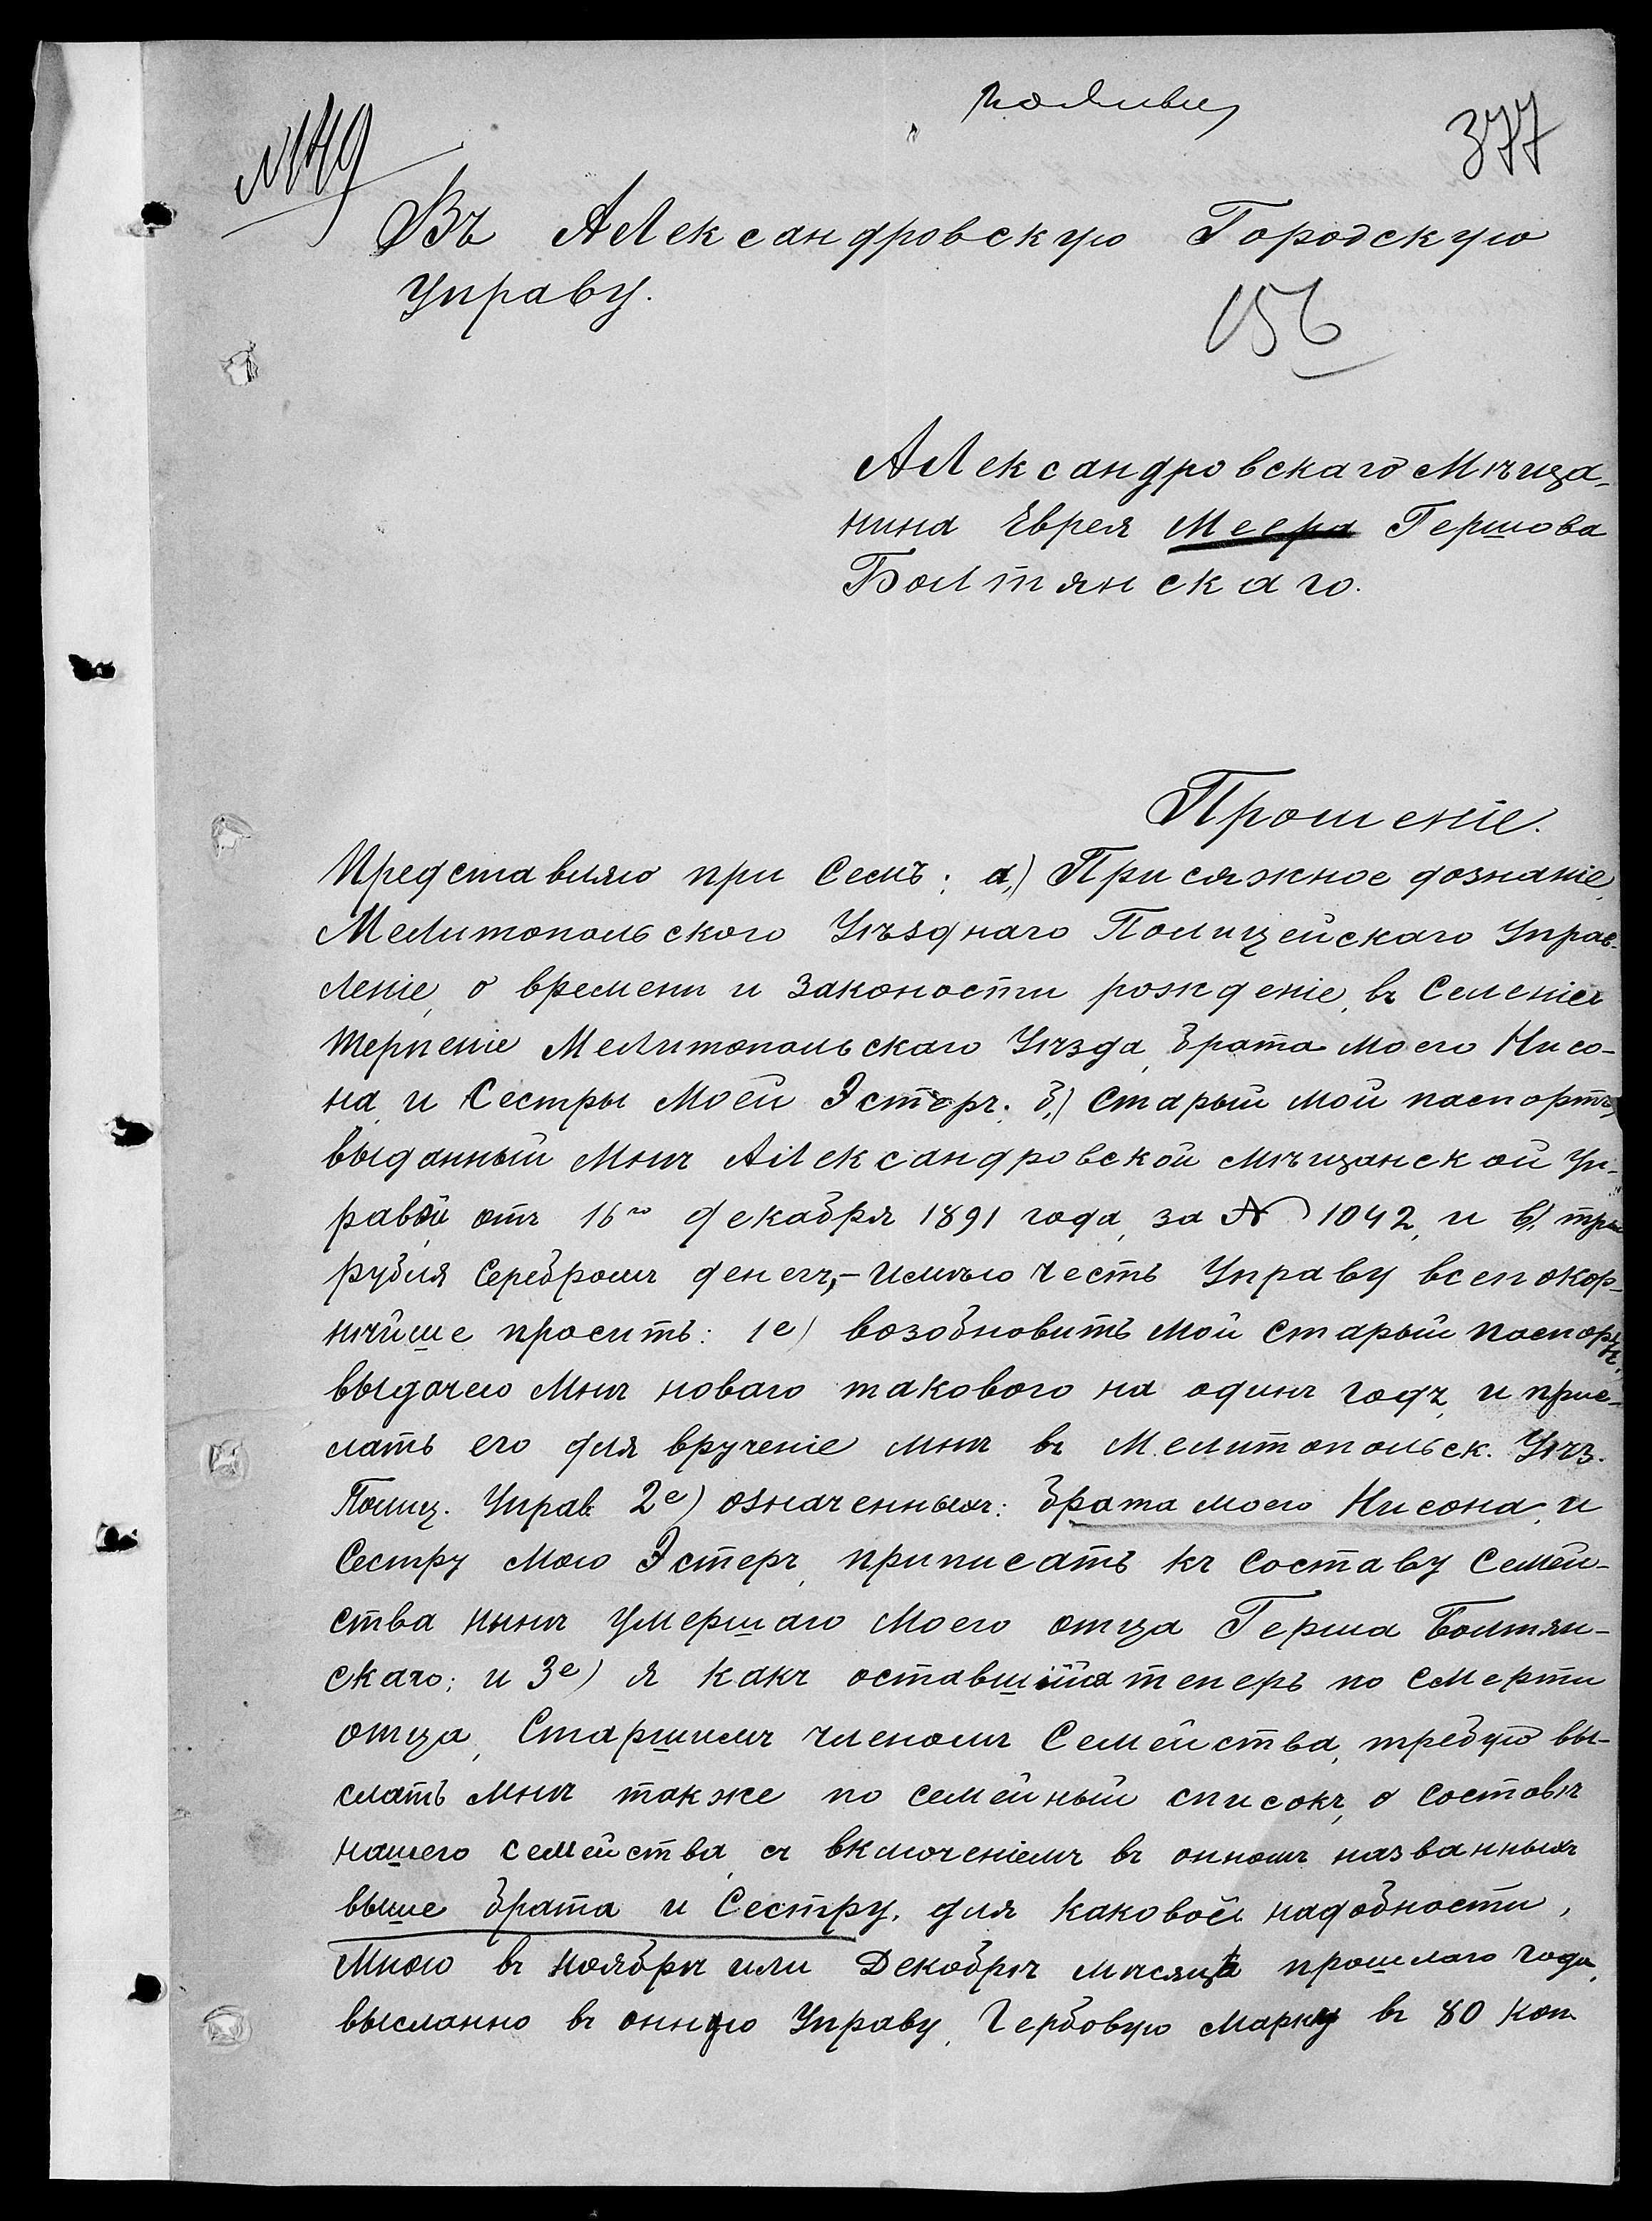 №149
377
Въ Александровскую Городскую
Управу.
156
Александровскаго Мѣща-
нина Еврея Меера Гершова
Болтянскаго.
Прошеніе.
Представляю при семъ: а) Присяжное дознаніе,
Мелитопольского Уѣзднаго Полицейскаго Управ-
леніе, о времени и законости рожденіе, въ Селеніи
Терпеніе Мелитопольскаго Уѣзда, брата моего Нисо-
на, и Сестры Моей Эстеръ. б) Старый мой паспортъ,
выданный Мнѣ Александровской мѣщанской Уп-
равой, отъ 16го декабря 1891 года, за № 1042, и в) три
рубля Серебромъ денегъ,- имѣю честь Управу всепокор-
нѣйше просить: 1е) возобновить мой старый паспортъ,
выдачею Мнѣ новаго таковаго на одинъ годъ, и прис-
лать его для врученіе мнѣ въ Мелитопольск. Уѣз.
Полиц. Управ. 2е) означенныхъ: брата моего Нисона, и
Сестру мою Эстеръ, приписать къ Составу Семей-
ства нынѣ умершаго Моего отца Герша Болтян-
скаго; и 3е) я какъ оставшійся теперь по смерти
отца, Старшимъ членомъ Семейства, требую вы-
слать Мнѣ также по семейный списокъ, о составѣ
нашего семейства, съ включеніемъ въ онномъ названныхъ
выше брата и Сестру, для каковой надобности,
Мною въ Ноябрѣ или Декабрѣ мѣсяца прошлаго года,
высланно въ онную Управу, Гербовую Марку въ 80 коп.